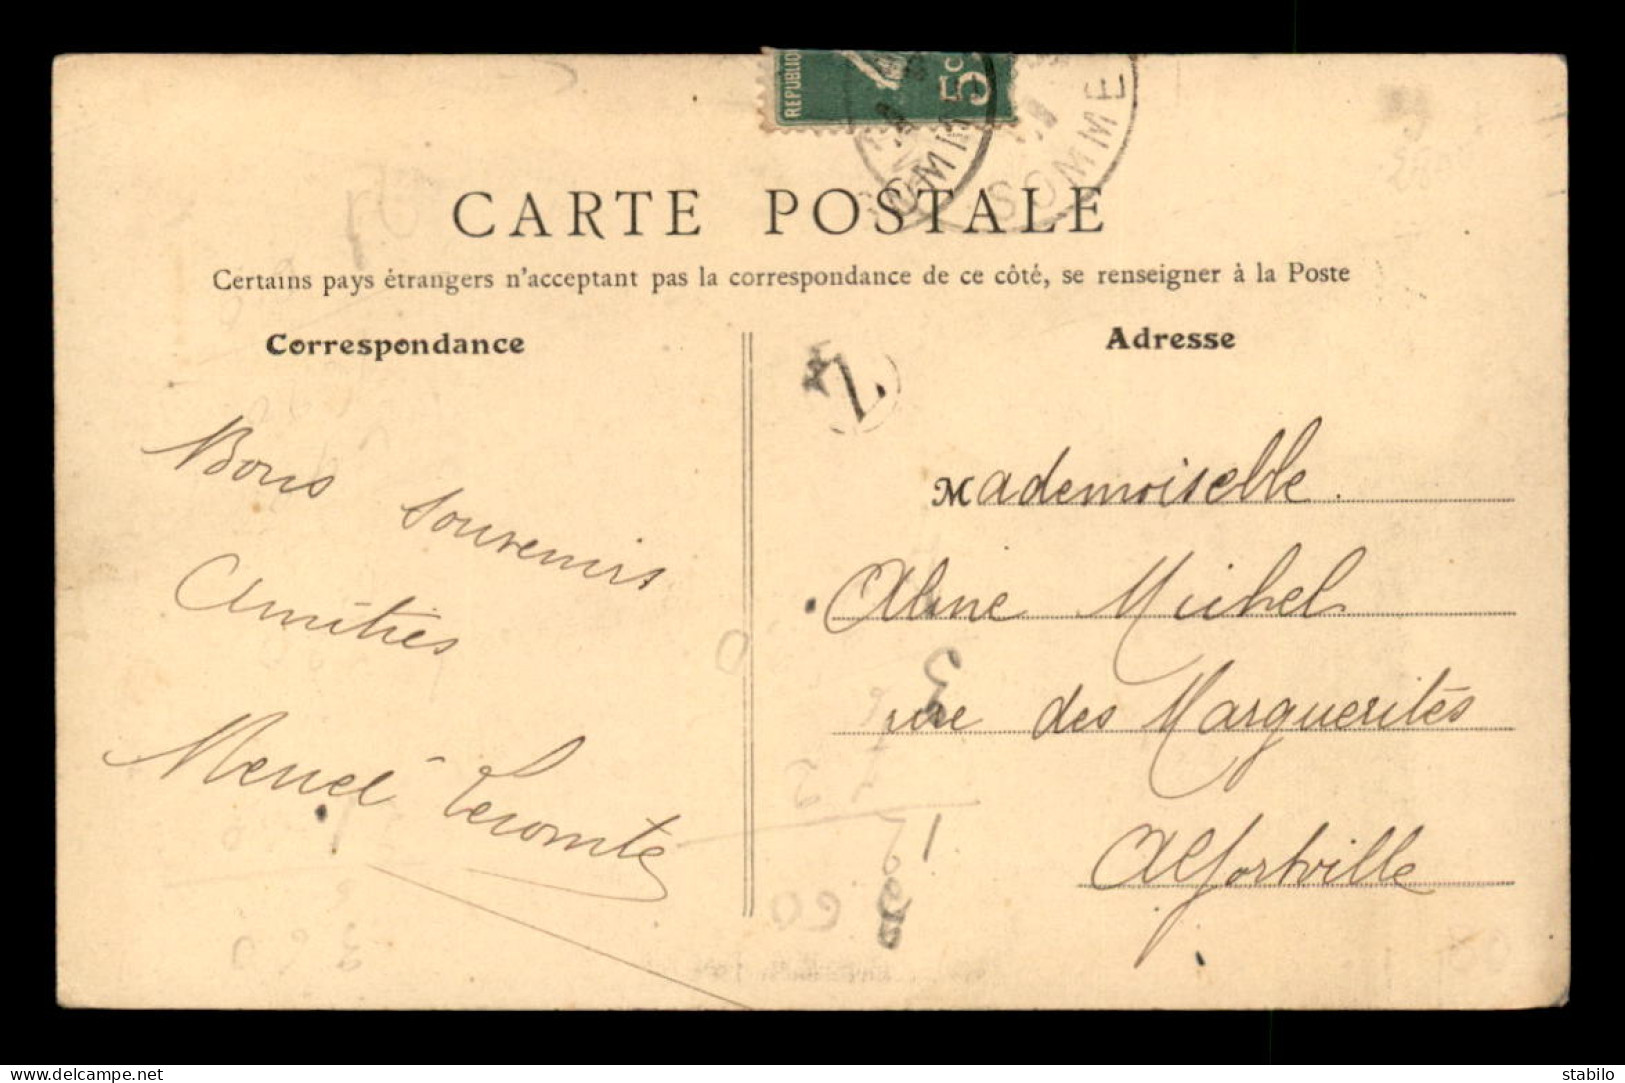 REPUBLIQ
5c
SOMME
SOMME
CARTE POSTALE
Certains pays étrangers n'acceptant pas la correspondance de ce côté, se renseigner à la Poste
Correspondance
Bons souvenirs
Amitiés
Lecomte
Adresse
Z
Mademoiselle
Aline Michel
rue des Marguerites
Alfortville
60
360
www.delcampe.net
stabilo